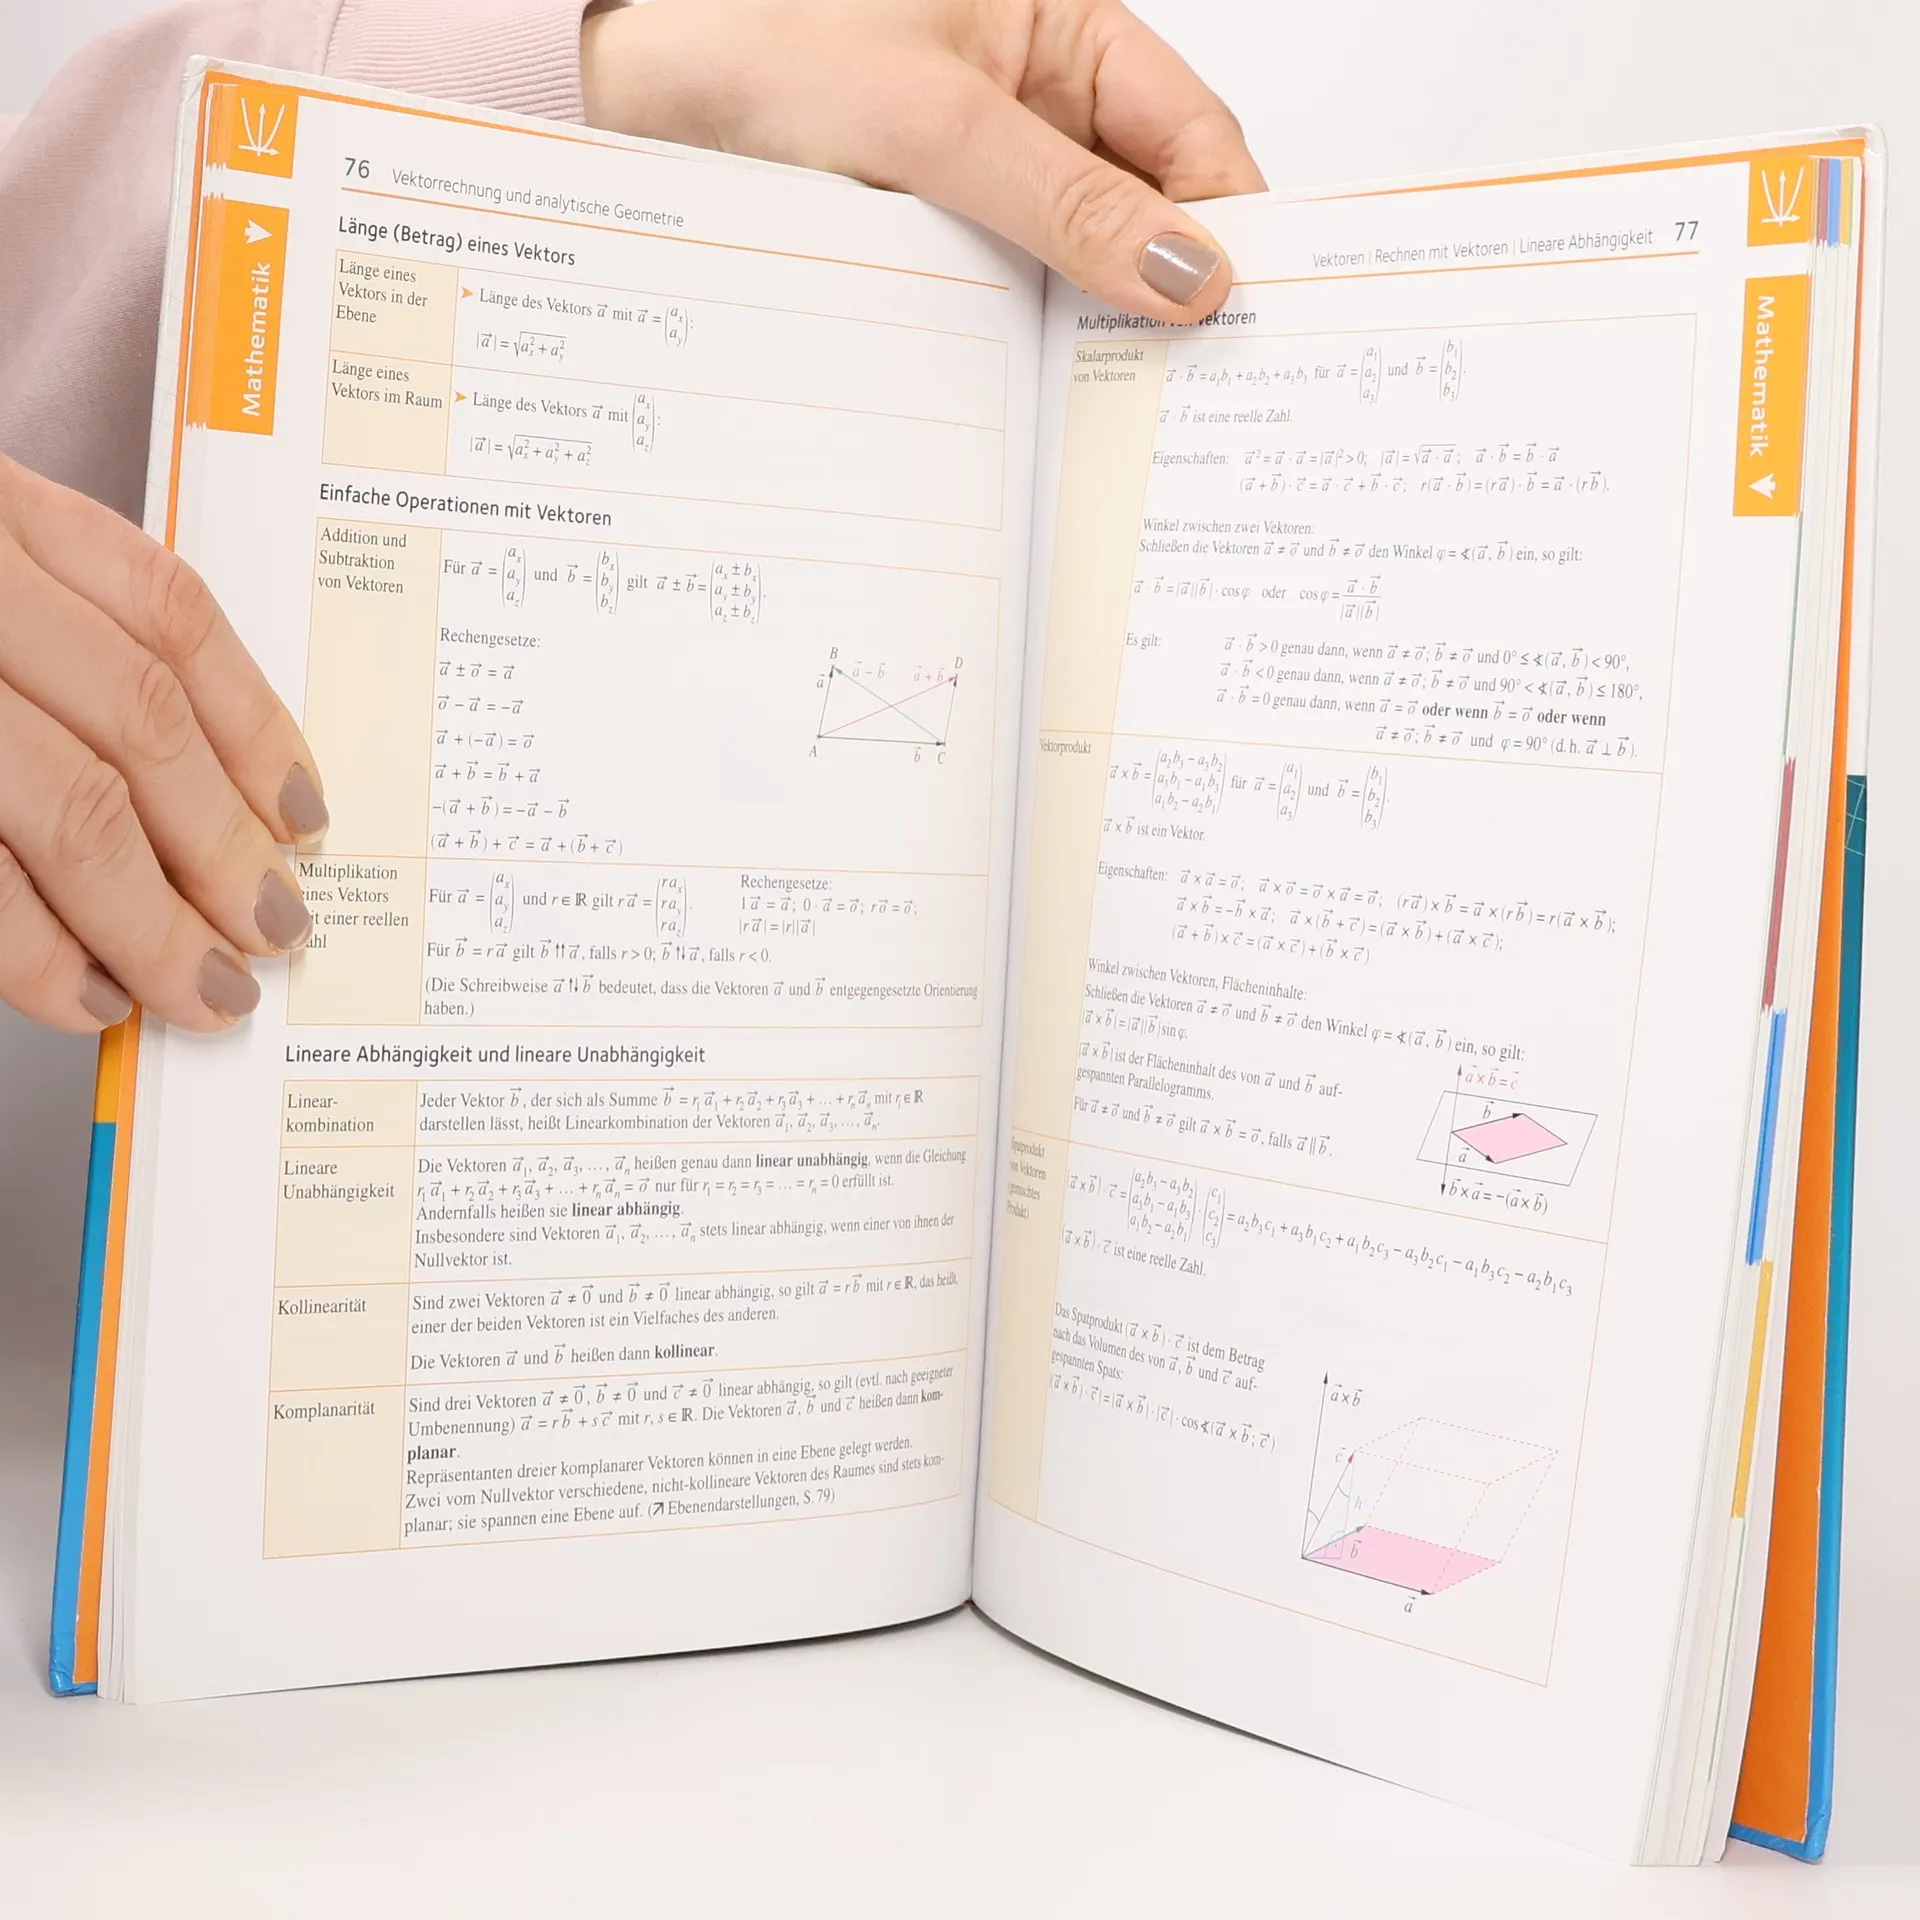 76 Vektorrechnung und analytische Geometrie
Mathematik
Länge (Betrag) eines Vektors
Länge eines
Vektors in der
Ebene
➤ Länge des Vektors a⃗ mit a⃗ = (aₓ, a_y):
|a⃗| = √(aₓ² + a_y²)
Länge eines
Vektors im Raum
➤ Länge des Vektors a⃗ mit (aₓ, a_y, a_z):
|a⃗| = √(aₓ² + a_y² + a_z²)
Einfache Operationen mit Vektoren
Addition und
Subtraktion
von Vektoren
Für a⃗ = (aₓ, a_y, a_z) und b⃗ = (bₓ, b_y, b_z) gilt a⃗ ± b⃗ = (aₓ ± bₓ, a_y ± b_y, a_z ± b_z).
Rechengesetze:
a⃗ ± o⃗ = a⃗
o⃗ − a⃗ = −a⃗
a⃗ + (−a⃗) = o⃗
a⃗ + b⃗ = b⃗ + a⃗
−(a⃗ + b⃗) = −a⃗ − b⃗
(a⃗ + b⃗) + c⃗ = a⃗ + (b⃗ + c⃗)
B a⃗ − b⃗ a⃗ + b⃗ D
a⃗
A b⃗ C
Multiplikation
eines Vektors
mit einer reellen
Zahl
Für a⃗ = (aₓ, a_y, a_z) und r ∈ ℝ gilt r a⃗ = (raₓ, ra_y, ra_z).
Rechengesetze:
1 a⃗ = a⃗; 0 · a⃗ = o⃗; r o⃗ = o⃗;
|r a⃗| = |r||a⃗|
Für b⃗ = r a⃗ gilt b⃗ ↑↑ a⃗, falls r > 0; b⃗ ↑↓ a⃗, falls r < 0.
(Die Schreibweise a⃗ ↑↓ b⃗ bedeutet, dass die Vektoren a⃗ und b⃗ entgegengesetzte Orientierung
haben.)
Lineare Abhängigkeit und lineare Unabhängigkeit
Linear-
kombination
Jeder Vektor b⃗, der sich als Summe b⃗ = r₁a⃗₁ + r₂a⃗₂ + r₃a⃗₃ + … + rₙa⃗ₙ mit rᵢ ∈ ℝ
darstellen lässt, heißt Linearkombination der Vektoren a⃗₁, a⃗₂, a⃗₃, …, a⃗ₙ.
Lineare
Unabhängigkeit
Die Vektoren a⃗₁, a⃗₂, a⃗₃, …, a⃗ₙ heißen genau dann linear unabhängig, wenn die Gleichung
r₁a⃗₁ + r₂a⃗₂ + r₃a⃗₃ + … + rₙa⃗ₙ = o⃗ nur für r₁ = r₂ = r₃ = … = rₙ = 0 erfüllt ist.
Andernfalls heißen sie linear abhängig.
Insbesondere sind Vektoren a⃗₁, a⃗₂, …, a⃗ₙ stets linear abhängig, wenn einer von ihnen der
Nullvektor ist.
Kollinearität
Sind zwei Vektoren a⃗ ≠ 0⃗ und b⃗ ≠ 0⃗ linear abhängig, so gilt a⃗ = r b⃗ mit r ∈ ℝ, das heißt,
einer der beiden Vektoren ist ein Vielfaches des anderen.
Die Vektoren a⃗ und b⃗ heißen dann kollinear.
Komplanarität
Sind drei Vektoren a⃗ ≠ 0⃗, b⃗ ≠ 0⃗ und c⃗ ≠ 0⃗ linear abhängig, so gilt (evtl. nach geeigneter
Umbenennung) a⃗ = r b⃗ + s c⃗ mit r, s ∈ ℝ. Die Vektoren a⃗, b⃗ und c⃗ heißen dann kom-
planar.
Repräsentanten dreier komplanarer Vektoren können in eine Ebene gelegt werden.
Zwei vom Nullvektor verschiedene, nicht-kollineare Vektoren des Raumes sind stets kom-
planar; sie spannen eine Ebene auf. (↗ Ebenendarstellungen, S. 79)
Vektoren | Rechnen mit Vektoren | Lineare Abhängigkeit 77
Mathematik
Multiplikation von Vektoren
Skalarprodukt
von Vektoren
a⃗ · b⃗ = a₁b₁ + a₂b₂ + a₃b₃ für a⃗ = (a₁, a₂, a₃) und b⃗ = (b₁, b₂, b₃).
a⃗ · b⃗ ist eine reelle Zahl.
Eigenschaften: a⃗² = a⃗ · a⃗ = |a⃗|² > 0; |a⃗| = √(a⃗ · a⃗); a⃗ · b⃗ = b⃗ · a⃗
(a⃗ + b⃗) · c⃗ = a⃗ · c⃗ + b⃗ · c⃗; r(a⃗ · b⃗) = (r a⃗) · b⃗ = a⃗ · (r b⃗).
Winkel zwischen zwei Vektoren:
Schließen die Vektoren a⃗ ≠ o⃗ und b⃗ ≠ o⃗ den Winkel φ = ∢(a⃗, b⃗) ein, so gilt:
a⃗ · b⃗ = |a⃗||b⃗| · cos φ oder cos φ = (a⃗ · b⃗)/(|a⃗||b⃗|)
Es gilt: a⃗ · b⃗ > 0 genau dann, wenn a⃗ ≠ o⃗; b⃗ ≠ o⃗ und 0° ≤ ∢(a⃗, b⃗) < 90°,
a⃗ · b⃗ < 0 genau dann, wenn a⃗ ≠ o⃗; b⃗ ≠ o⃗ und 90° < ∢(a⃗, b⃗) ≤ 180°,
a⃗ · b⃗ = 0 genau dann, wenn a⃗ = o⃗ oder wenn b⃗ = o⃗ oder wenn
a⃗ ≠ o⃗; b⃗ ≠ o⃗ und φ = 90° (d. h. a⃗ ⊥ b⃗).
Vektorprodukt
a⃗ × b⃗ = (a₂b₃ − a₃b₂, a₃b₁ − a₁b₃, a₁b₂ − a₂b₁) für a⃗ = (a₁, a₂, a₃) und b⃗ = (b₁, b₂, b₃).
a⃗ × b⃗ ist ein Vektor.
Eigenschaften: a⃗ × a⃗ = o⃗; a⃗ × o⃗ = o⃗ × a⃗ = o⃗; (r a⃗) × b⃗ = a⃗ × (r b⃗) = r(a⃗ × b⃗);
a⃗ × b⃗ = −b⃗ × a⃗; a⃗ × (b⃗ + c⃗) = (a⃗ × b⃗) + (a⃗ × c⃗);
(a⃗ + b⃗) × c⃗ = (a⃗ × c⃗) + (b⃗ × c⃗)
Winkel zwischen Vektoren, Flächeninhalte:
Schließen die Vektoren a⃗ ≠ o⃗ und b⃗ ≠ o⃗ den Winkel φ = ∢(a⃗, b⃗) ein, so gilt:
|a⃗ × b⃗| = |a⃗||b⃗| sin φ.
|a⃗ × b⃗| ist der Flächeninhalt des von a⃗ und b⃗ auf-
gespannten Parallelogramms.
Für a⃗ ≠ o⃗ und b⃗ ≠ o⃗ gilt a⃗ × b⃗ = o⃗, falls a⃗ ∥ b⃗.
a⃗ × b⃗ = c⃗
b⃗
a⃗
b⃗ × a⃗ = −(a⃗ × b⃗)
Spatprodukt
von Vektoren
(gemischtes
Produkt)
(a⃗ × b⃗) · c⃗ = (a₂b₃ − a₃b₂, a₃b₁ − a₁b₃, a₁b₂ − a₂b₁) · (c₁, c₂, c₃) = a₂b₃c₁ + a₃b₁c₂ + a₁b₂c₃ − a₃b₂c₁ − a₁b₃c₂ − a₂b₁c₃
(a⃗ × b⃗) · c⃗ ist eine reelle Zahl.
Das Spatprodukt (a⃗ × b⃗) · c⃗ ist dem Betrag
nach das Volumen des von a⃗, b⃗ und c⃗ auf-
gespannten Spats:
|(a⃗ × b⃗) · c⃗| = |a⃗ × b⃗| · |c⃗| · cos ∢(a⃗ × b⃗; c⃗)
a⃗ × b⃗
c⃗
h
b⃗
a⃗